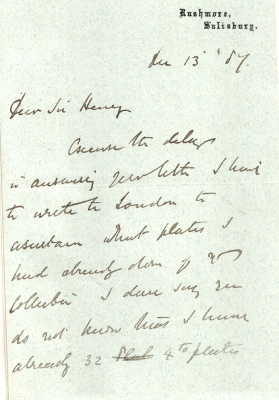 Rushmore,
Salisbury.
Dec 13th 87.
Dear Sir Henry
Excuse the delay
in answering your letter I had
to write to London to
ascertain what plates I
had already done of your
Collection I dare say you
do not know that I have
already 32 4to plates